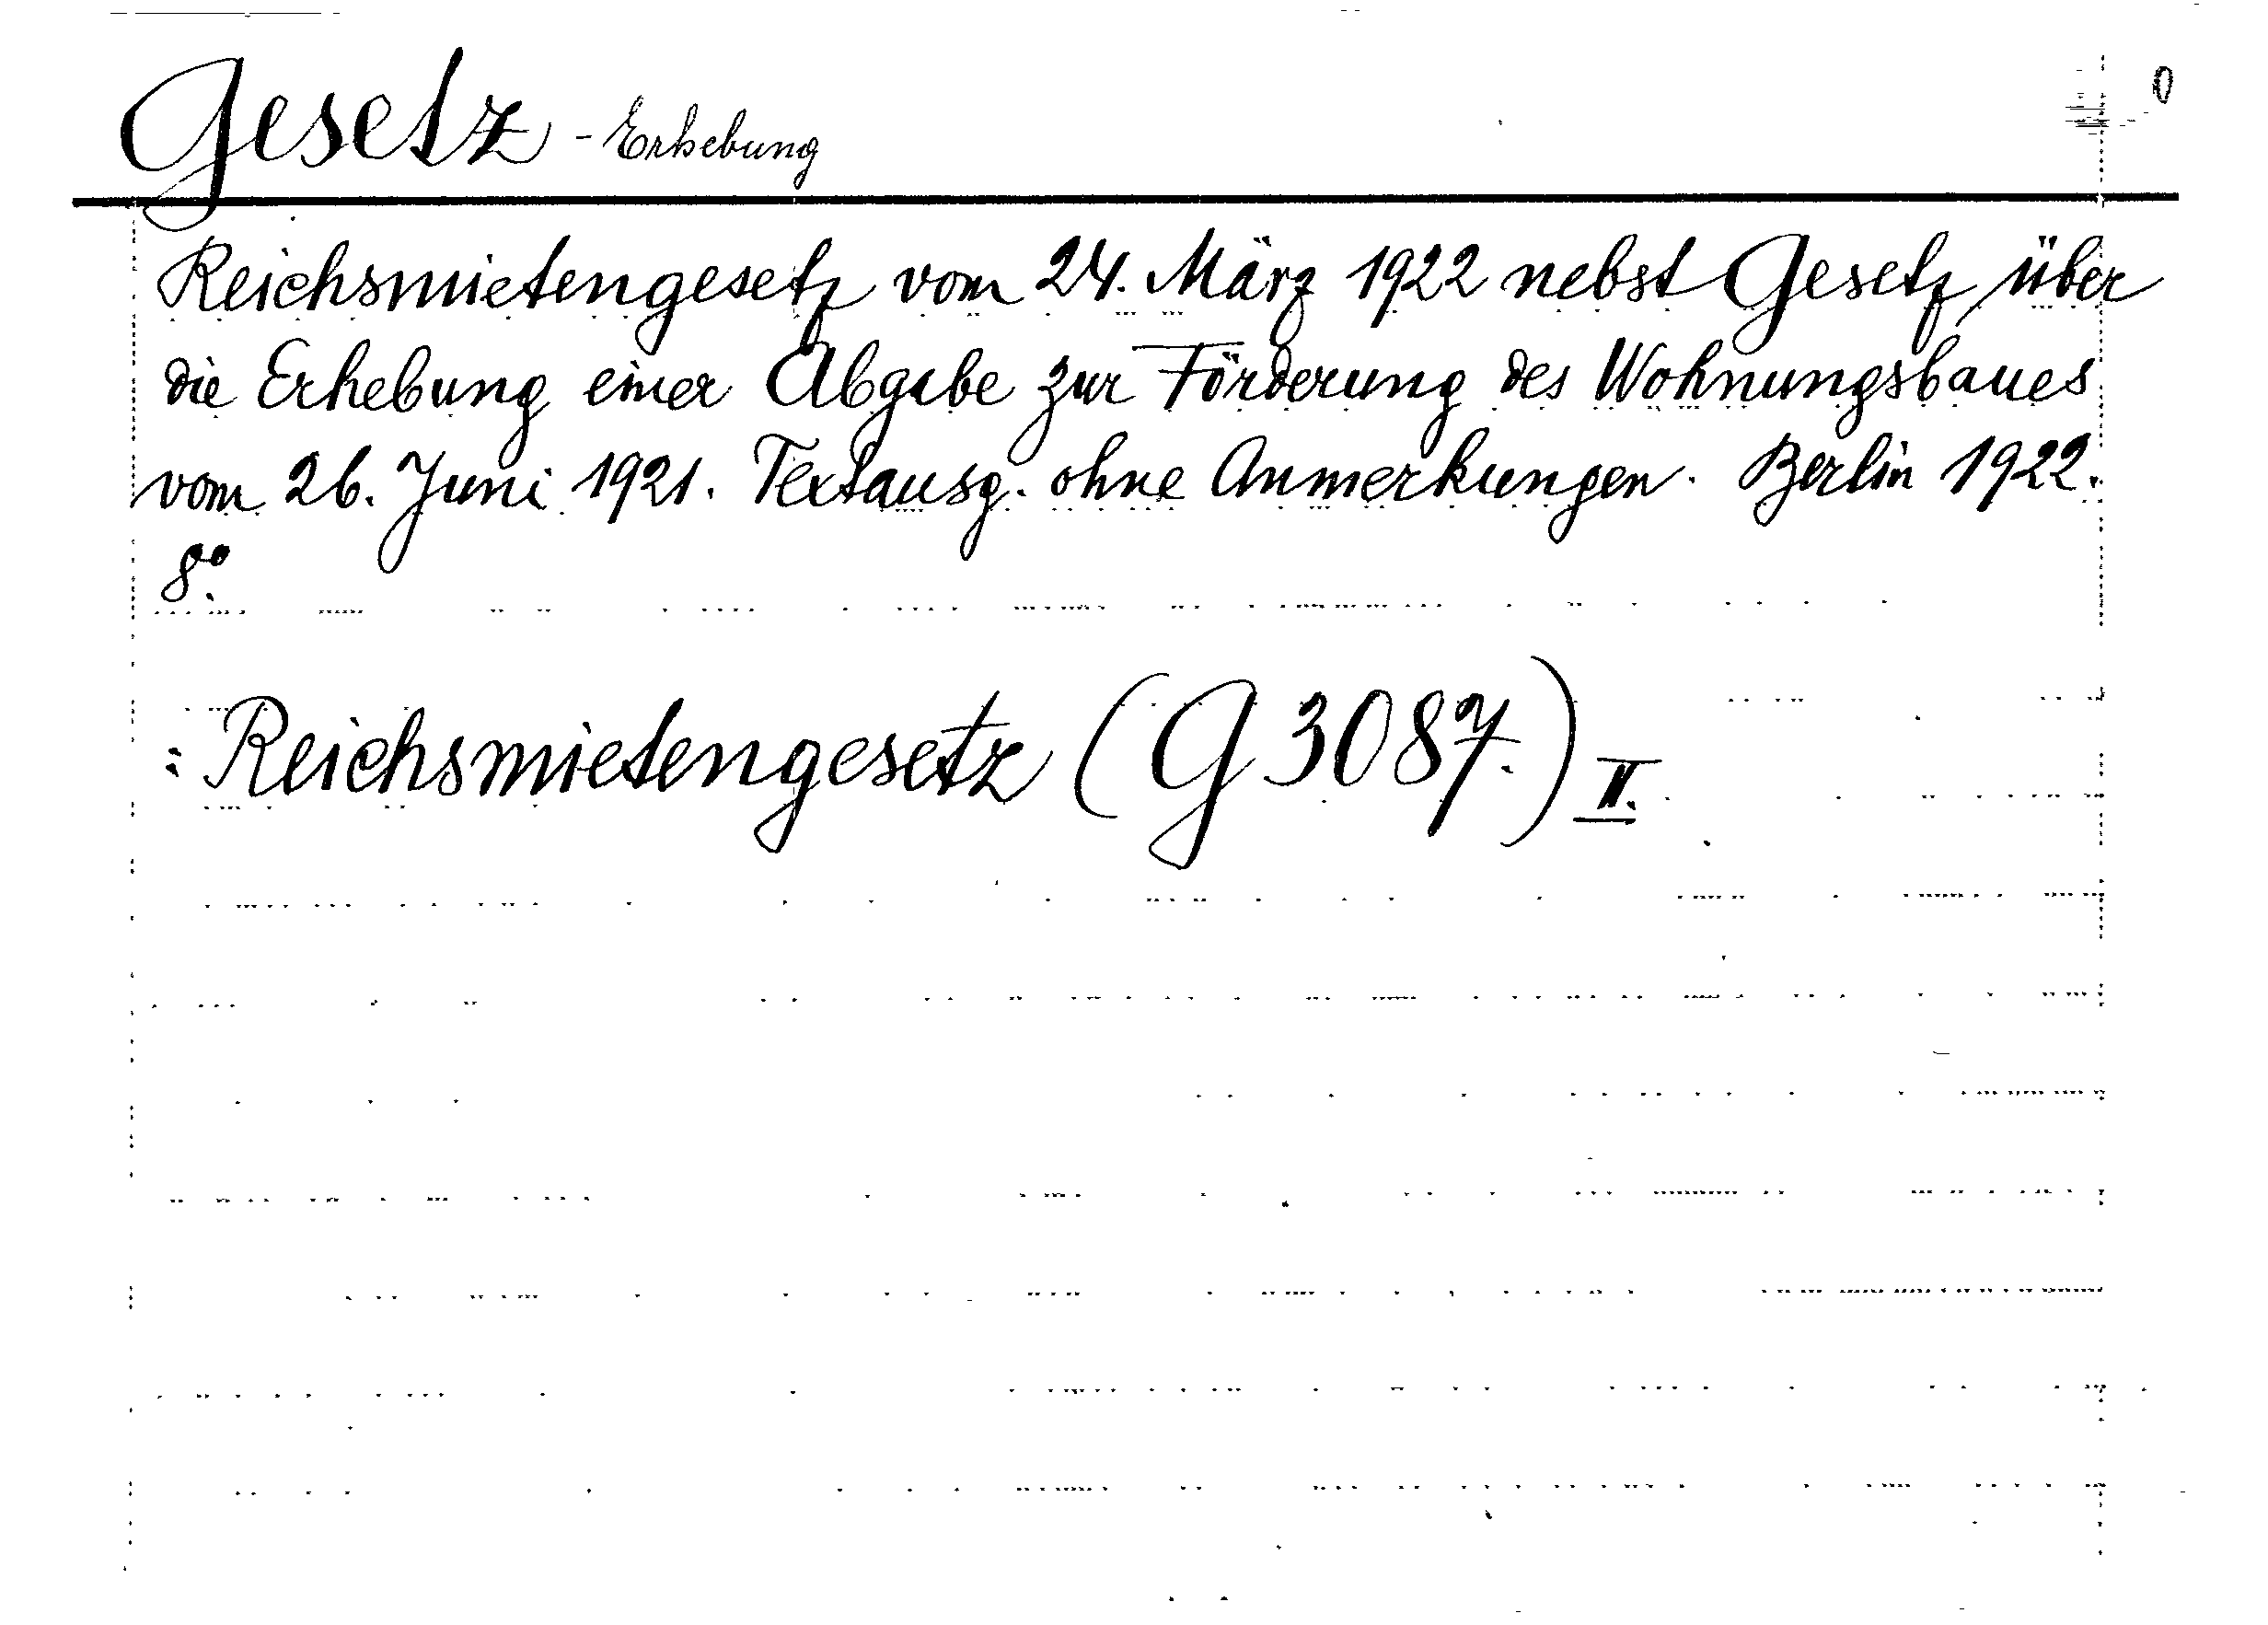 Gesetz - Erhebung
Reichsmietengesetz vom 24. März 1922 nebst Gesetz über
die Erhebung einer Abgabe zur Förderung des Wohnungsbaues
vom 26. Juni 1921. Textausg. ohne Anmerkungen. Berlin 1922.
8°.
: Reichsmietengesetz (G 3087.) II.